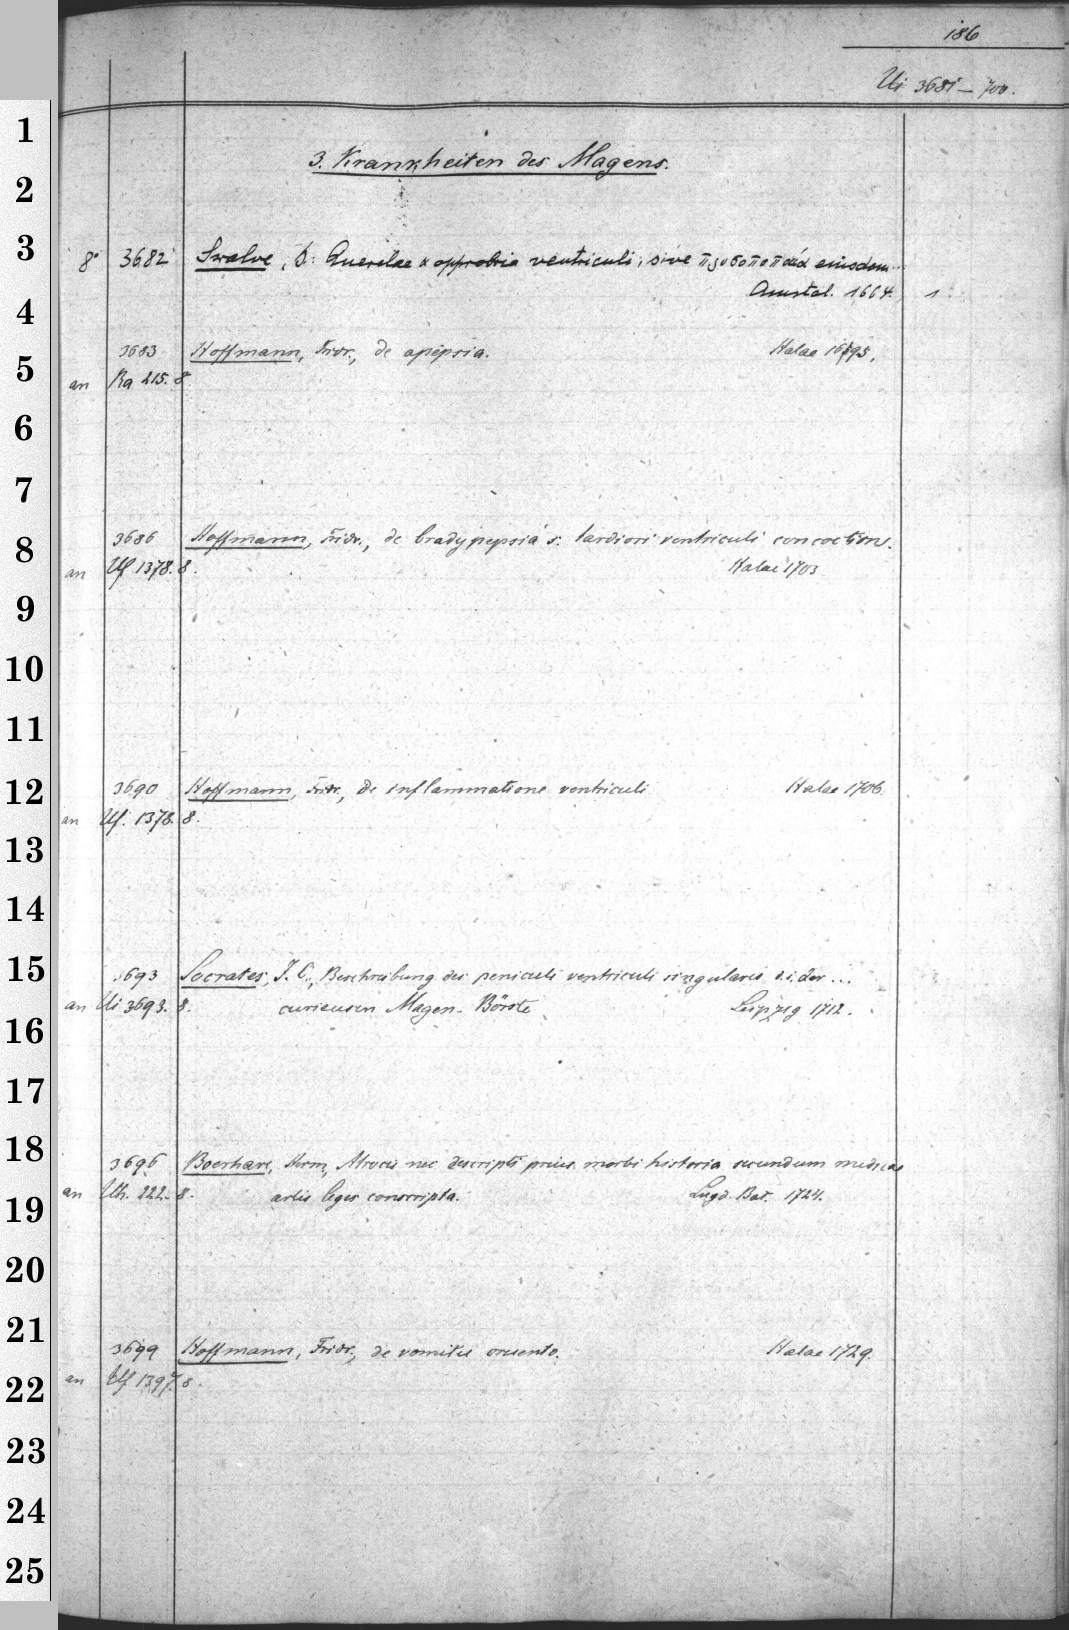 186
Ui 3681 – 700.
3. Krankheiten des Magens.
8° 3682 Swalve, B: Querelae & opprobria ventriculi; sive προσοποποιία eiusdem...
Amstel. 1664. 1
3683 Hoffmann, Fridr., de apepsia. Halae 1695.
an Ra 215. 8.
3686 Hoffmann, Fridr., de bradypepsia s. tardiori ventriculi concoctione.
an Uf 1378. 8. Halae 1703
3690 Hoffmann, Fridr., de inflammatione ventriculi Halae 1706.
an Uf. 1378. 8.
3693 Socrates, J. C., Beschreibung des peniculi ventriculi singularis, s. i. der ...
an Ui 3693. 8. curieusen Magen-Börste Leipzig 1712.
3696 Boerhave, Herm, Atrocis nec descripti prius morbi historia secundum medicae
an Uh. 222. 8. artis leges conscripta. Lugd. Bat. 1724.
3699 Hoffmann, Fridr., de vomitu cruento. Halae 1729.
an Uf 1397. 8.
1
2
3
4
5
6
7
8
9
10
11
12
13
14
15
16
17
18
19
20
21
22
23
24
25